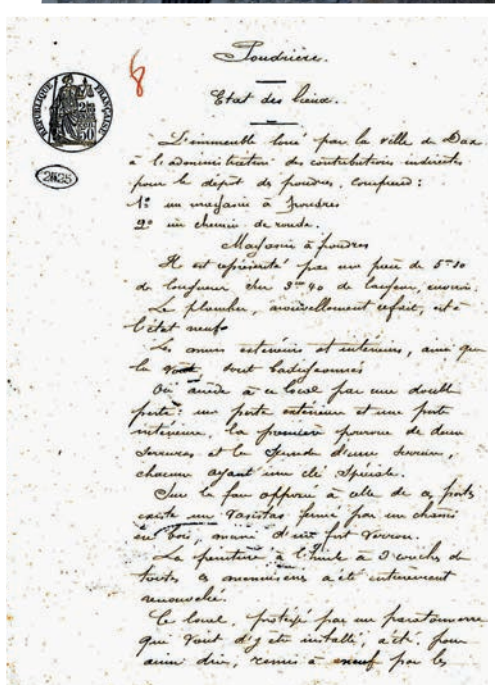 8
Poudrière.
Etat des lieux.
RÉPUBLIQUE FRANÇAISE
2535
L'immeuble loué par la ville de Dax
à l'administration des contributions indirectes
pour le dépôt des poudres, comprend:
1º un magasin à poudres
2º un chemin de ronde.
Magasin à poudres
Il est représenté par une pièce de 5m10
de longueur sur 3m40 de largeur, environ.
Le plancher, nouvellement refait, est à
l'état neuf
Les murs extérieurs et intérieurs, ainsi que
la voûte, sont badigeonnés
On accède à ce local par une double
porte: une porte extérieure et une porte
intérieure, la première pourvue de deux
serrures et la seconde d'une serrure,
chacune ayant une clé spéciale.
Sur la face opposée à celle de ces portes
existe un vasistas fermé par un châssis
en bois, muni d'un fort verrou.
La peinture à l'huile à 3 couches de
toutes ces menuiseries a été entièrement
renouvelée.
Ce local, protégé par un paratonnerre
qui vient d'y être installé, a été, pour
ainsi dire, remis à neuf par les